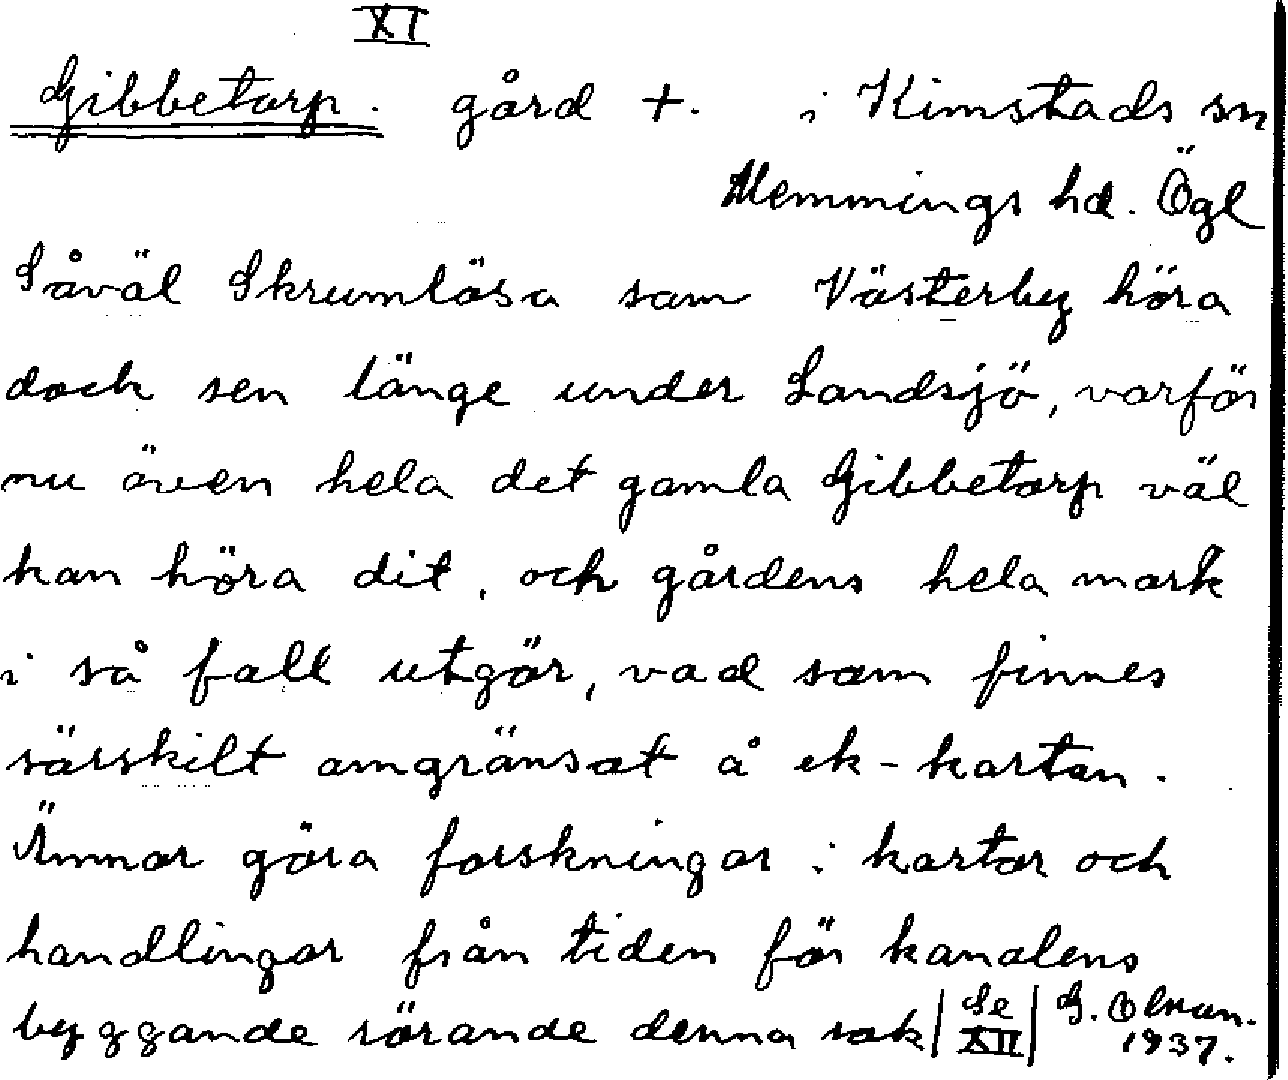 XI
Gibbetorp. gård +. i Kimstads sn
Memmings hd. Ögl
Såväl Skrumlösa som Västerby höra
dock sen länge under Landsjö, varför
nu även hela det gamla Gibbetorp väl
kan höra dit, och gårdens hela mark
i så fall utgör, vad som finnes
särskilt omgränsat å ek-kartan.
Ämnar göra forskningar i kartor och
handlingar från tiden för kanalens
byggande rörande denna sak | Se XII | G. 1937.